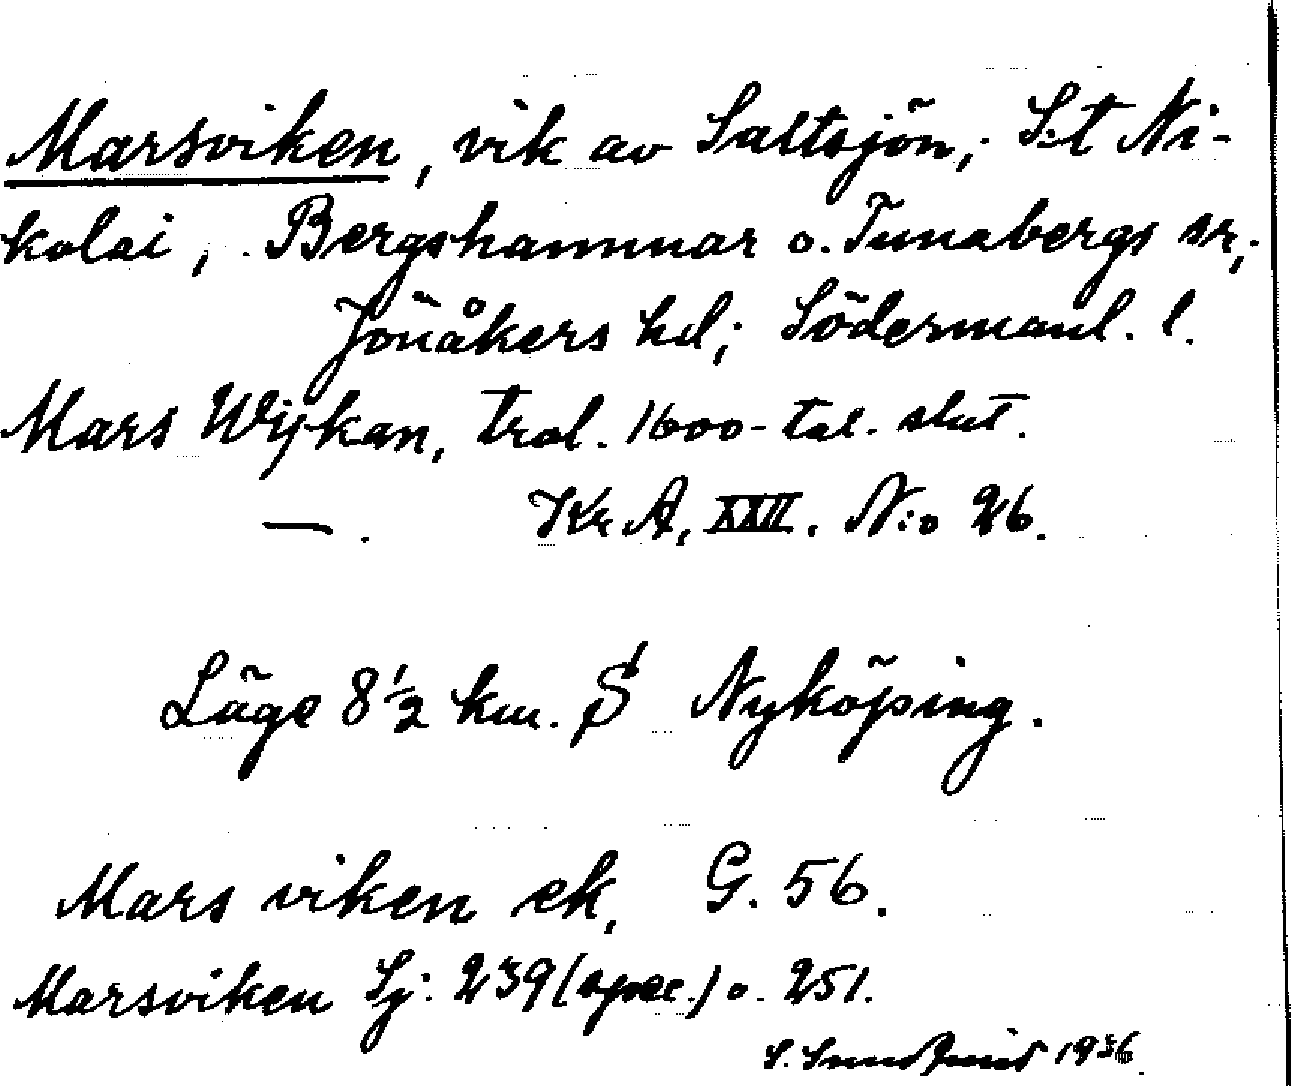 Marsviken, vik av Saltsjön; S:t Ni-
kolai, Bergshammar o. Tunabergs sr,
Jönåkers hd; Södermanl. l.
Mars Wijkan, trol. 1600-tal. slut.
— . Kr. A, XXII. N:o 26.
Läge 8 1/2 km. S Nyköping.
Mars viken ek, G. 56.
Marsviken Sj. 239 (spec.) o. 251.
S. 1936